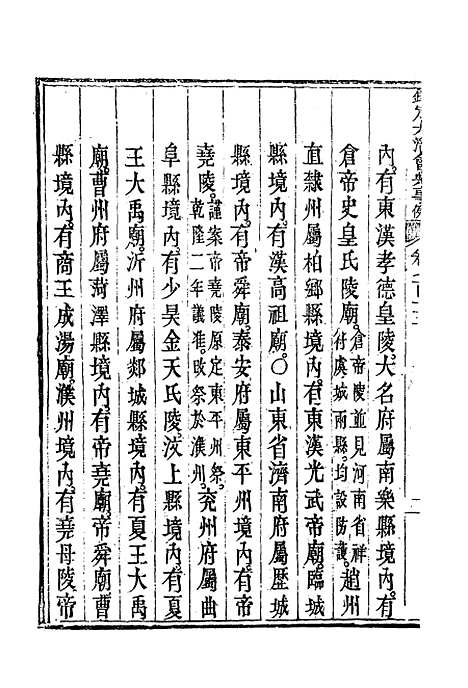 欽定大清會典事例 卷
內有東漢孝德皇陵大名府屬南樂縣境內有
倉帝史皇氏陵廟倉帝陵並見河南省祥付虞城兩縣均設防護趙州
直隸州屬柏鄉縣境內有東漢光武帝廟臨城
縣境內有漢高祖廟〇山東省濟南府屬歷城
縣境內有帝舜廟泰安府屬東平州境內有帝
堯陵謹案帝堯陵原定東平州祭乾隆二年議准改祭於濮州兗州府屬曲
阜縣境內有少昊金天氏陵汶上縣境內有夏
王大禹廟沂州府屬郯城縣境內有夏王大禹
廟曹州府屬菏澤縣境內有帝堯廟帝舜廟曹
縣境內有商王成湯廟濮州境內有堯母陵帝